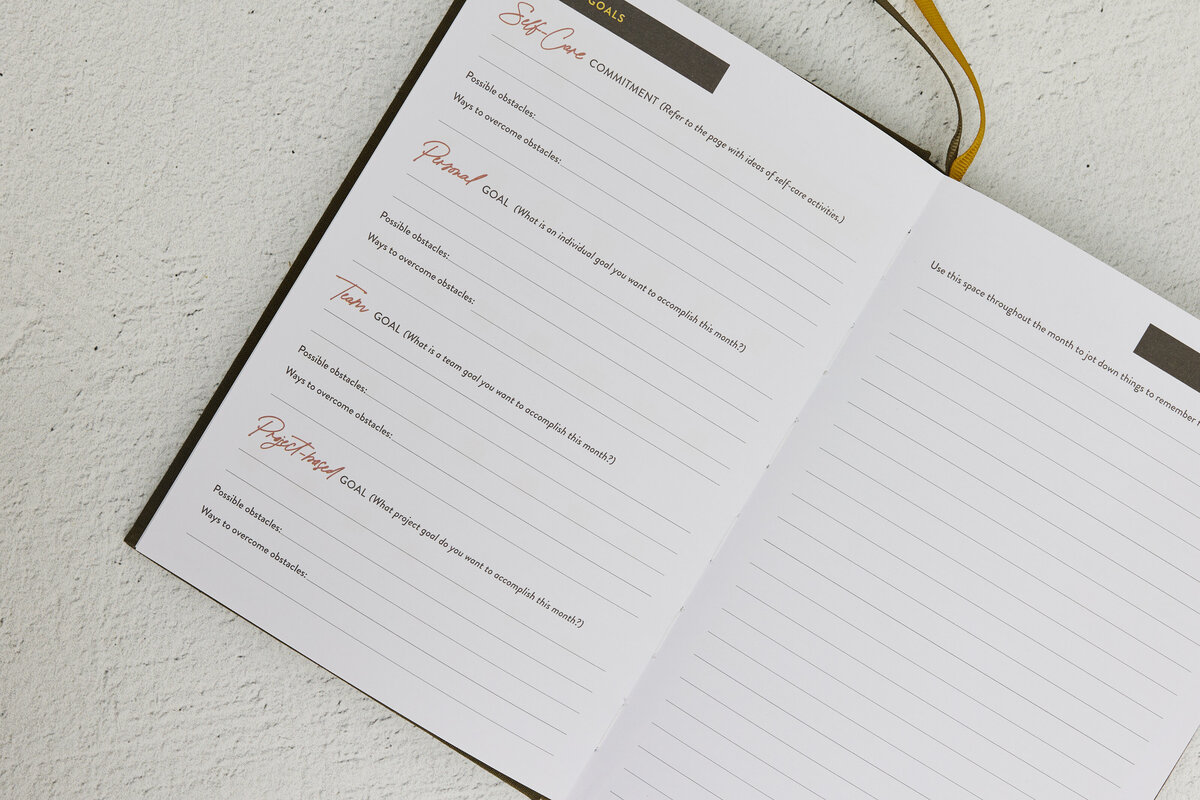 GOALS
Self-Care COMMITMENT (Refer to the page with ideas of self-care activities.)
Possible obstacles:
Ways to overcome obstacles:
Personal GOAL (What is an individual goal you want to accomplish this month?)
Possible obstacles:
Ways to overcome obstacles:
Team GOAL (What is a team goal you want to accomplish this month?)
Possible obstacles:
Ways to overcome obstacles:
Project-based GOAL (What project goal do you want to accomplish this month?)
Possible obstacles:
Ways to overcome obstacles:
Use this space throughout the month to jot down things to remember